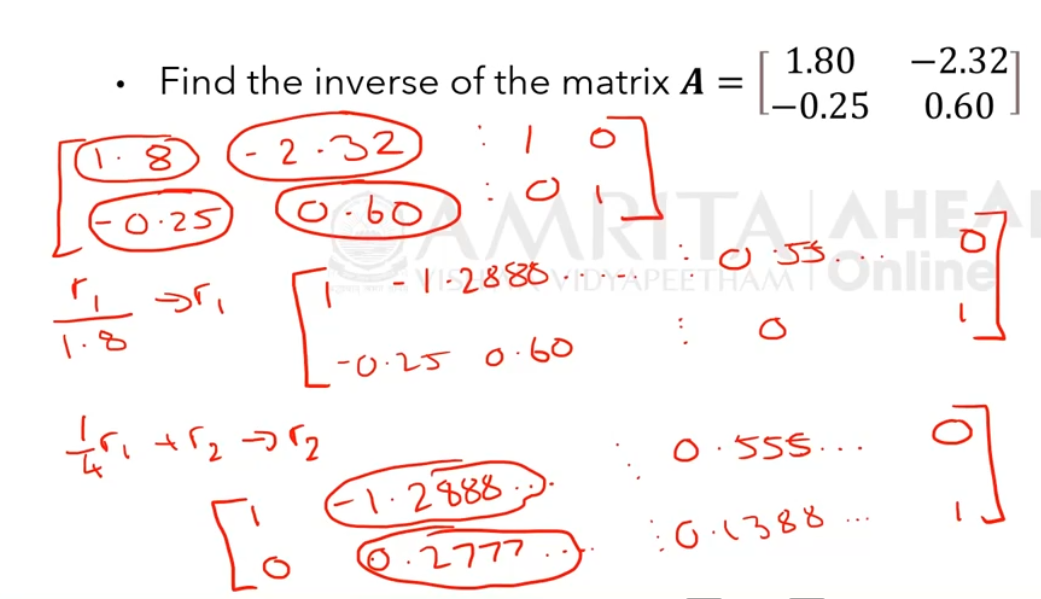 • Find the inverse of the matrix A = [1.80 −2.32
−0.25 0.60]
[1.8 -2.32 : 1 0
-0.25 0.60 : 0 1]
AMRITA | AHEA
VISHWA VIDYAPEETHAM | Online
r₁/1.8 → r₁ [1 -1.2888..... : 0.55... 0
-0.25 0.60 : 0 1]
1/4 r₁ + r₂ → r₂
[1 -1.2888... : 0.555... 0
0 0.2777..... : 0.1388... 1]